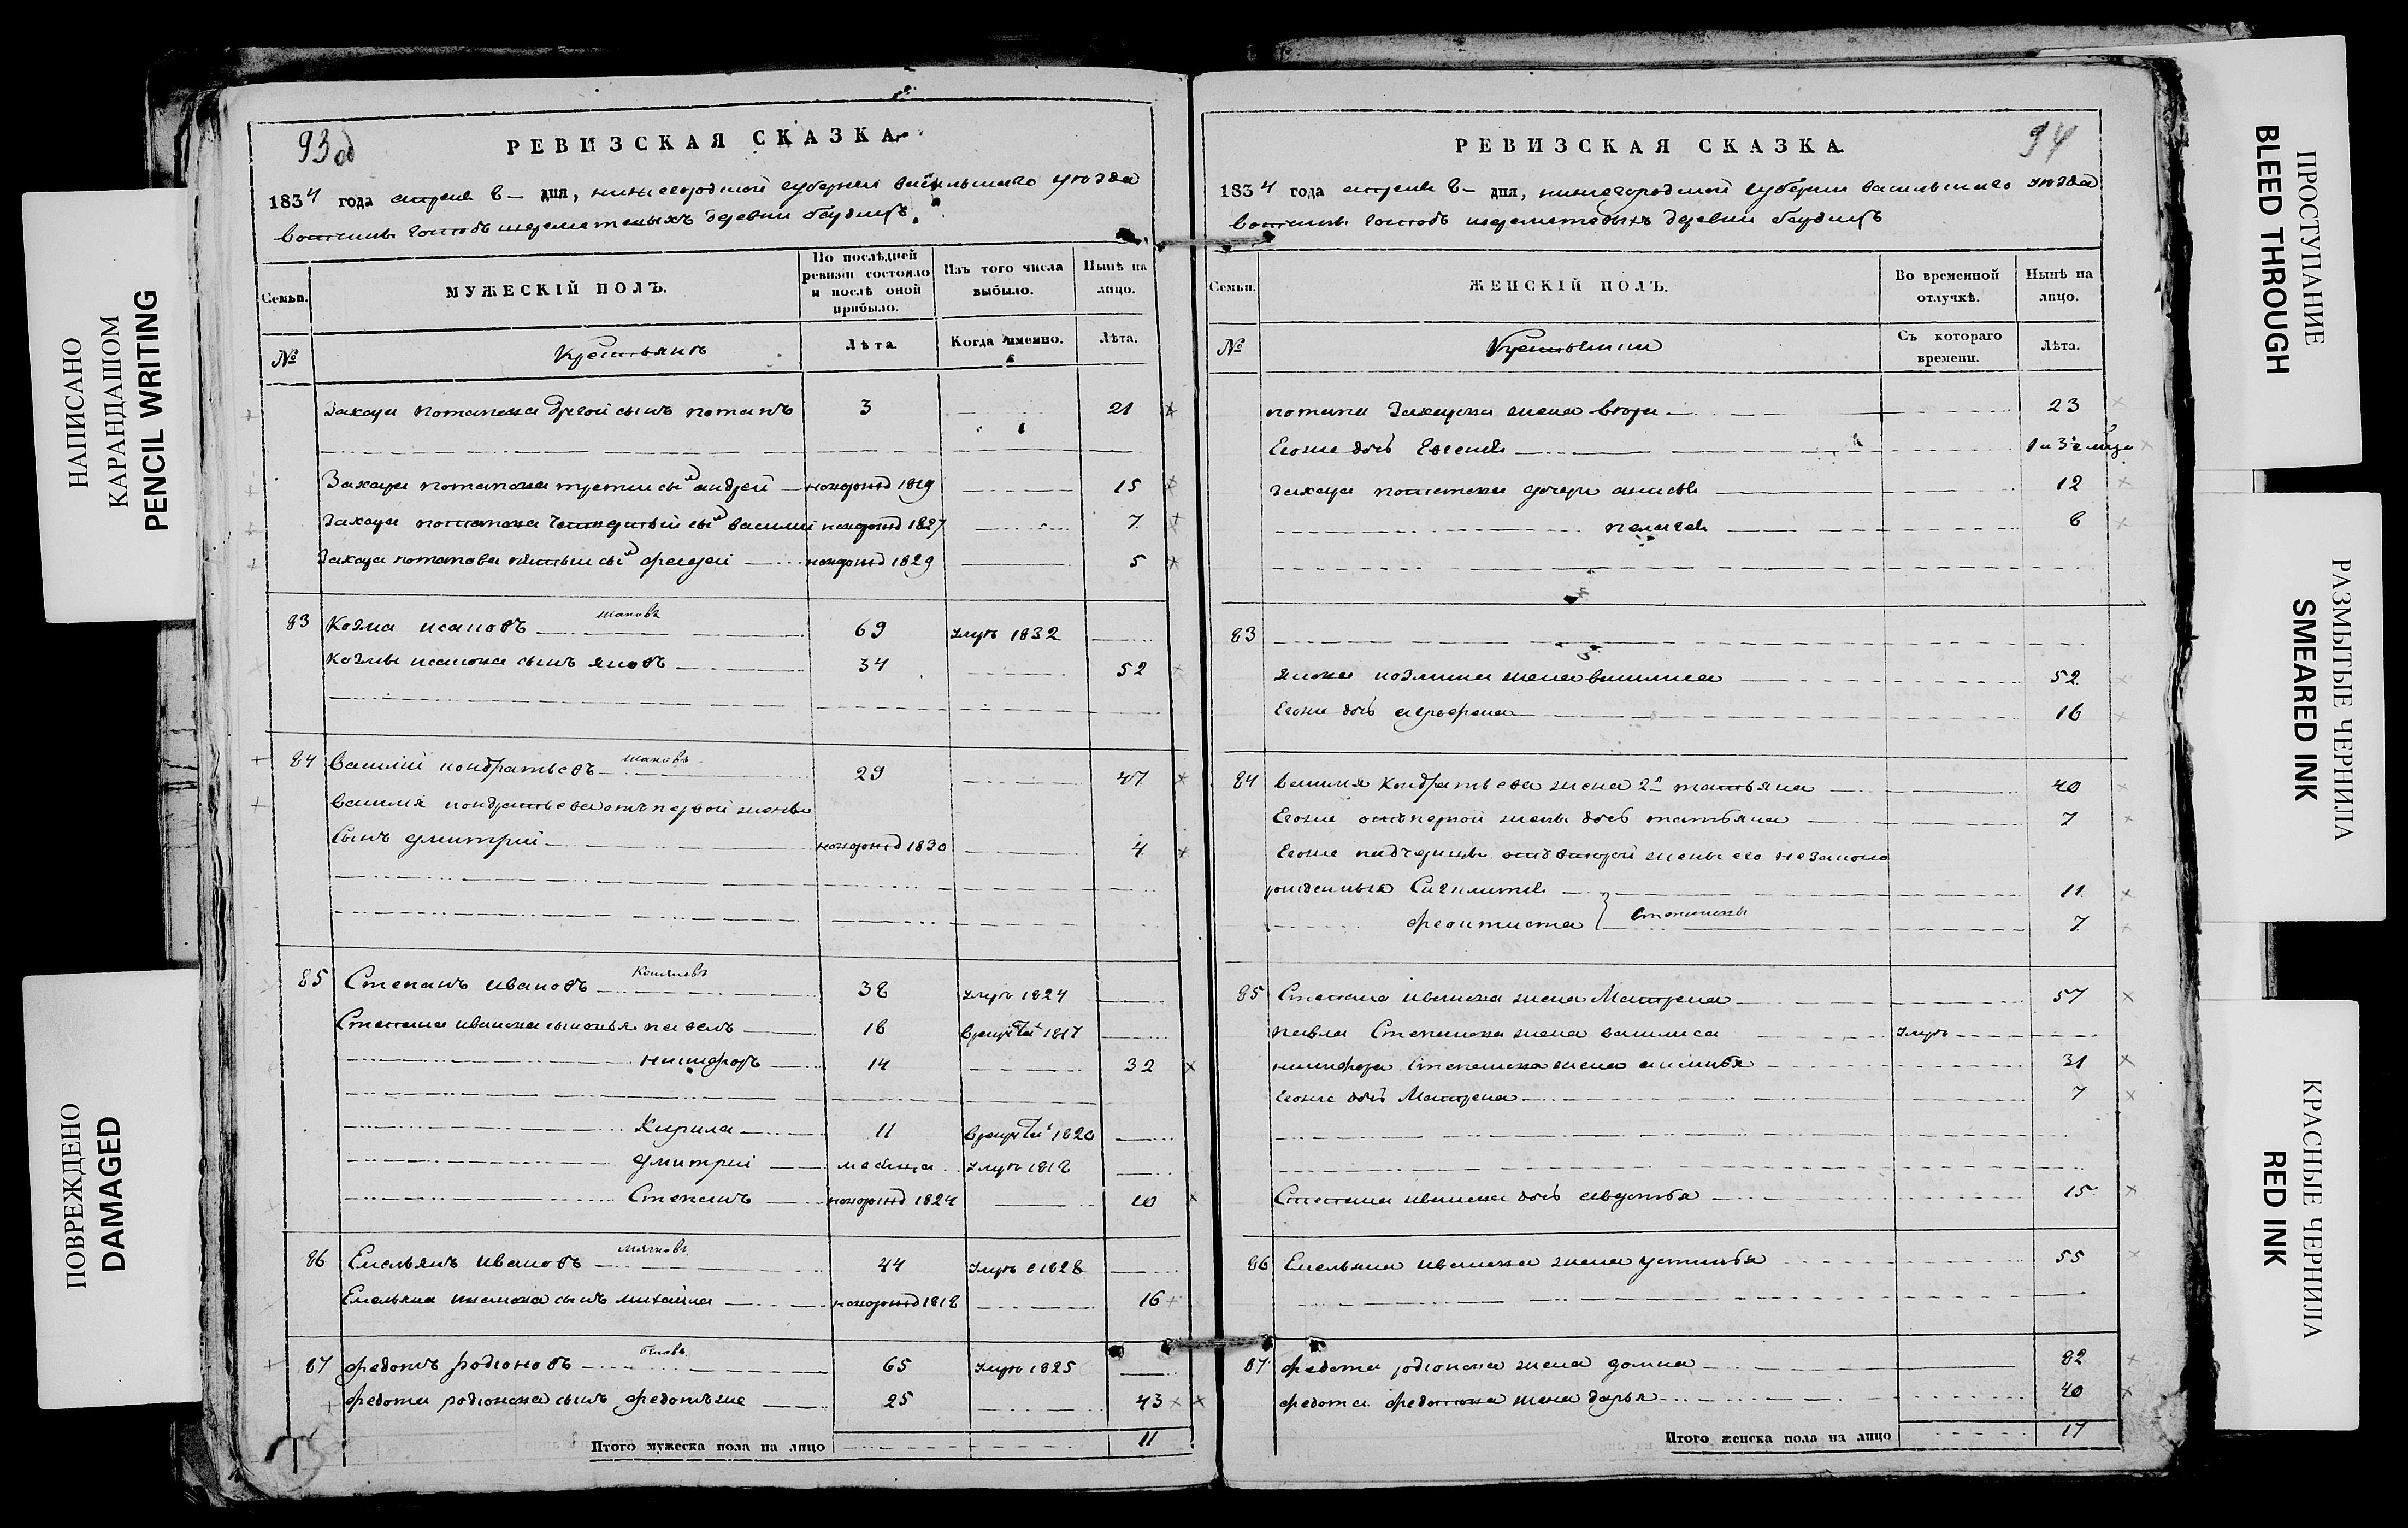 НАПИСАНО
КАРАНДАШОМ
PENCIL WRITING
ПОВРЕЖДЕНО
DAMAGED
93 об
РЕВИЗСКАЯ СКАЗКА.
1834 года апреля 8 дня, нижегородской губернии васильскаго уѣзда
вотчины господъ шереметевыхъ деревни
Семьи.
МУЖЕСКІЙ ПОЛЪ.
По послѣдней ревизіи состояло и послѣ оной прибыло.
Изъ того числа выбыло.
Нынѣ на лицо.
№
Крестьянъ
Лѣта.
Когда именно.
Лѣта.
Захара потапова другой сынъ потапъ 3 21
Захара потапова третий сынъ андрей новорожд 1819 15
Захара потапова четвертый сынъ василий новорожд 1827 7
Захара потапова пятый сынъ новорожд 1829 5
83 Козма исаковъ 69 умръ 1832
Козмы исакова сынъ яковъ 34 52
84 Василий кондратьевъ 29 47
Василия кондратьева отъ первой жены
Сынъ дмитрий новорожд 1830 4
85 Степанъ ивановъ 38 умръ 1824
Степана иванова сыновья павелъ 18 в рекруты 1817
никифоръ 14 32
Кирила 11 в рекруты 1820
дмитрий умръ 1818
Степанъ новорожд 1824 10
86 Емельянъ ивановъ 44 умръ 1828
Емельяна иванова сынъ михайла новорожд 1818 16
87 федотъ родионовъ 65 умръ 1825
федота родионова сынъ федотъ же 25 43
Итого мужеска пола на лицо 11
94
РЕВИЗСКАЯ СКАЗКА.
1834 года апреля 8 дня, нижегородской губернии васильскаго уѣзда
вотчины господъ шереметевыхъ деревни
Семьи.
ЖЕНСКІЙ ПОЛЪ.
Во временной отлучкѣ.
Нынѣ на лицо.
№
Съ котораго времени.
Лѣта.
потапа Захарова жена 23
Егоже дочь 1 и 3
Захара потапова дочери анисья 12
пелагея 6
83
якова козмина жена василиса 52
Егоже дочь 16
84 василия Кондратьева жена 2я татьяна 40
Егоже отъ первой жены дочь татьяна 7
Егоже падчерицы отъ второй жены его незаконо
рожденныя 11
феоктиста 7
85 Степана иванова жена Матрена 57
павла Степанова жена василиса умръ
никифора Степанова жена аксинья 31
Егоже дочь Матрена 7
Степана иванова дочь авдотья 15
86 Емельяна иванова жена устинья 55
87 федота родионова жена домна 82
федота федотова жена дарья 40
Итого женска пола на лицо 17
ПРОСТУПАНИЕ
BLEED THROUGH
РАЗМЫТЫЕ ЧЕРНИЛА
SMEARED INK
КРАСНЫЕ ЧЕРНИЛА
RED INK